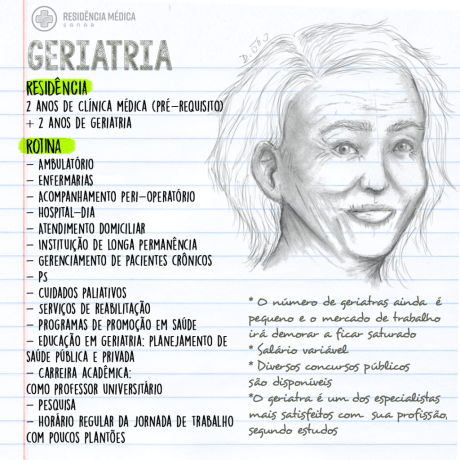 RESIDÊNCIA MÉDICA
SANAR
GERIATRIA
RESIDÊNCIA
2 ANOS DE CLÍNICA MÉDICA (PRÉ-REQUISITO)
+ 2 ANOS DE GERIATRIA
ROTINA
- AMBULATÓRIO
- ENFERMARIAS
- ACOMPANHAMENTO PERI-OPERATÓRIO
- HOSPITAL-DIA
- ATENDIMENTO DOMICILIAR
- INSTITUIÇÃO DE LONGA PERMANÊNCIA
- GERENCIAMENTO DE PACIENTES CRÔNICOS
- PS
- CUIDADOS PALIATIVOS
- SERVIÇOS DE REABILITAÇÃO
- PROGRAMAS DE PROMOÇÃO EM SAÚDE
- EDUCAÇÃO EM GERIATRIA: PLANEJAMENTO DE
SAÚDE PÚBLICA E PRIVADA
- CARREIRA ACADÊMICA:
COMO PROFESSOR UNIVERSITÁRIO
- PESQUISA
- HORÁRIO REGULAR DA JORNADA DE TRABALHO
COM POUCOS PLANTÕES
* O número de geriatras ainda é
pequeno e o mercado de trabalho
irá demorar a ficar saturado
* Salário variável
* Diversos concursos públicos
são disponíveis
*O geriatra é um dos especialistas
mais satisfeitos com sua profissão,
segundo estudos